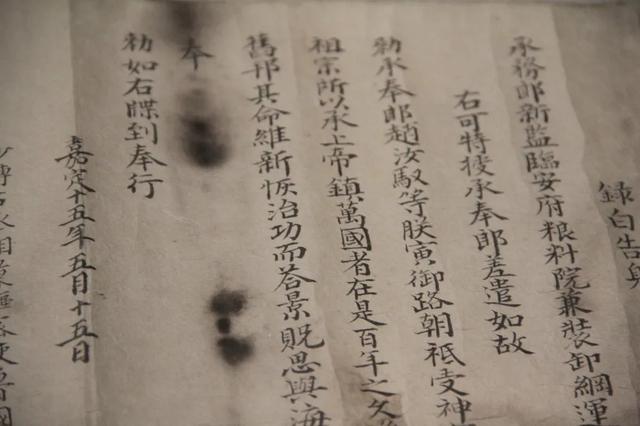 錄白告
承務郎新監臨安府粮料院兼裝卸綱運
右可特授承奉郎差遣如故
勑承奉郎趙汝馭等朕寅御路朝祗受神
祖宗所以承上帝鎮萬國者在是百年之久
舊邦其命維新恢治功而荅景貺思與海
奉
勑如右牒到奉行
嘉定十五年五月十五日